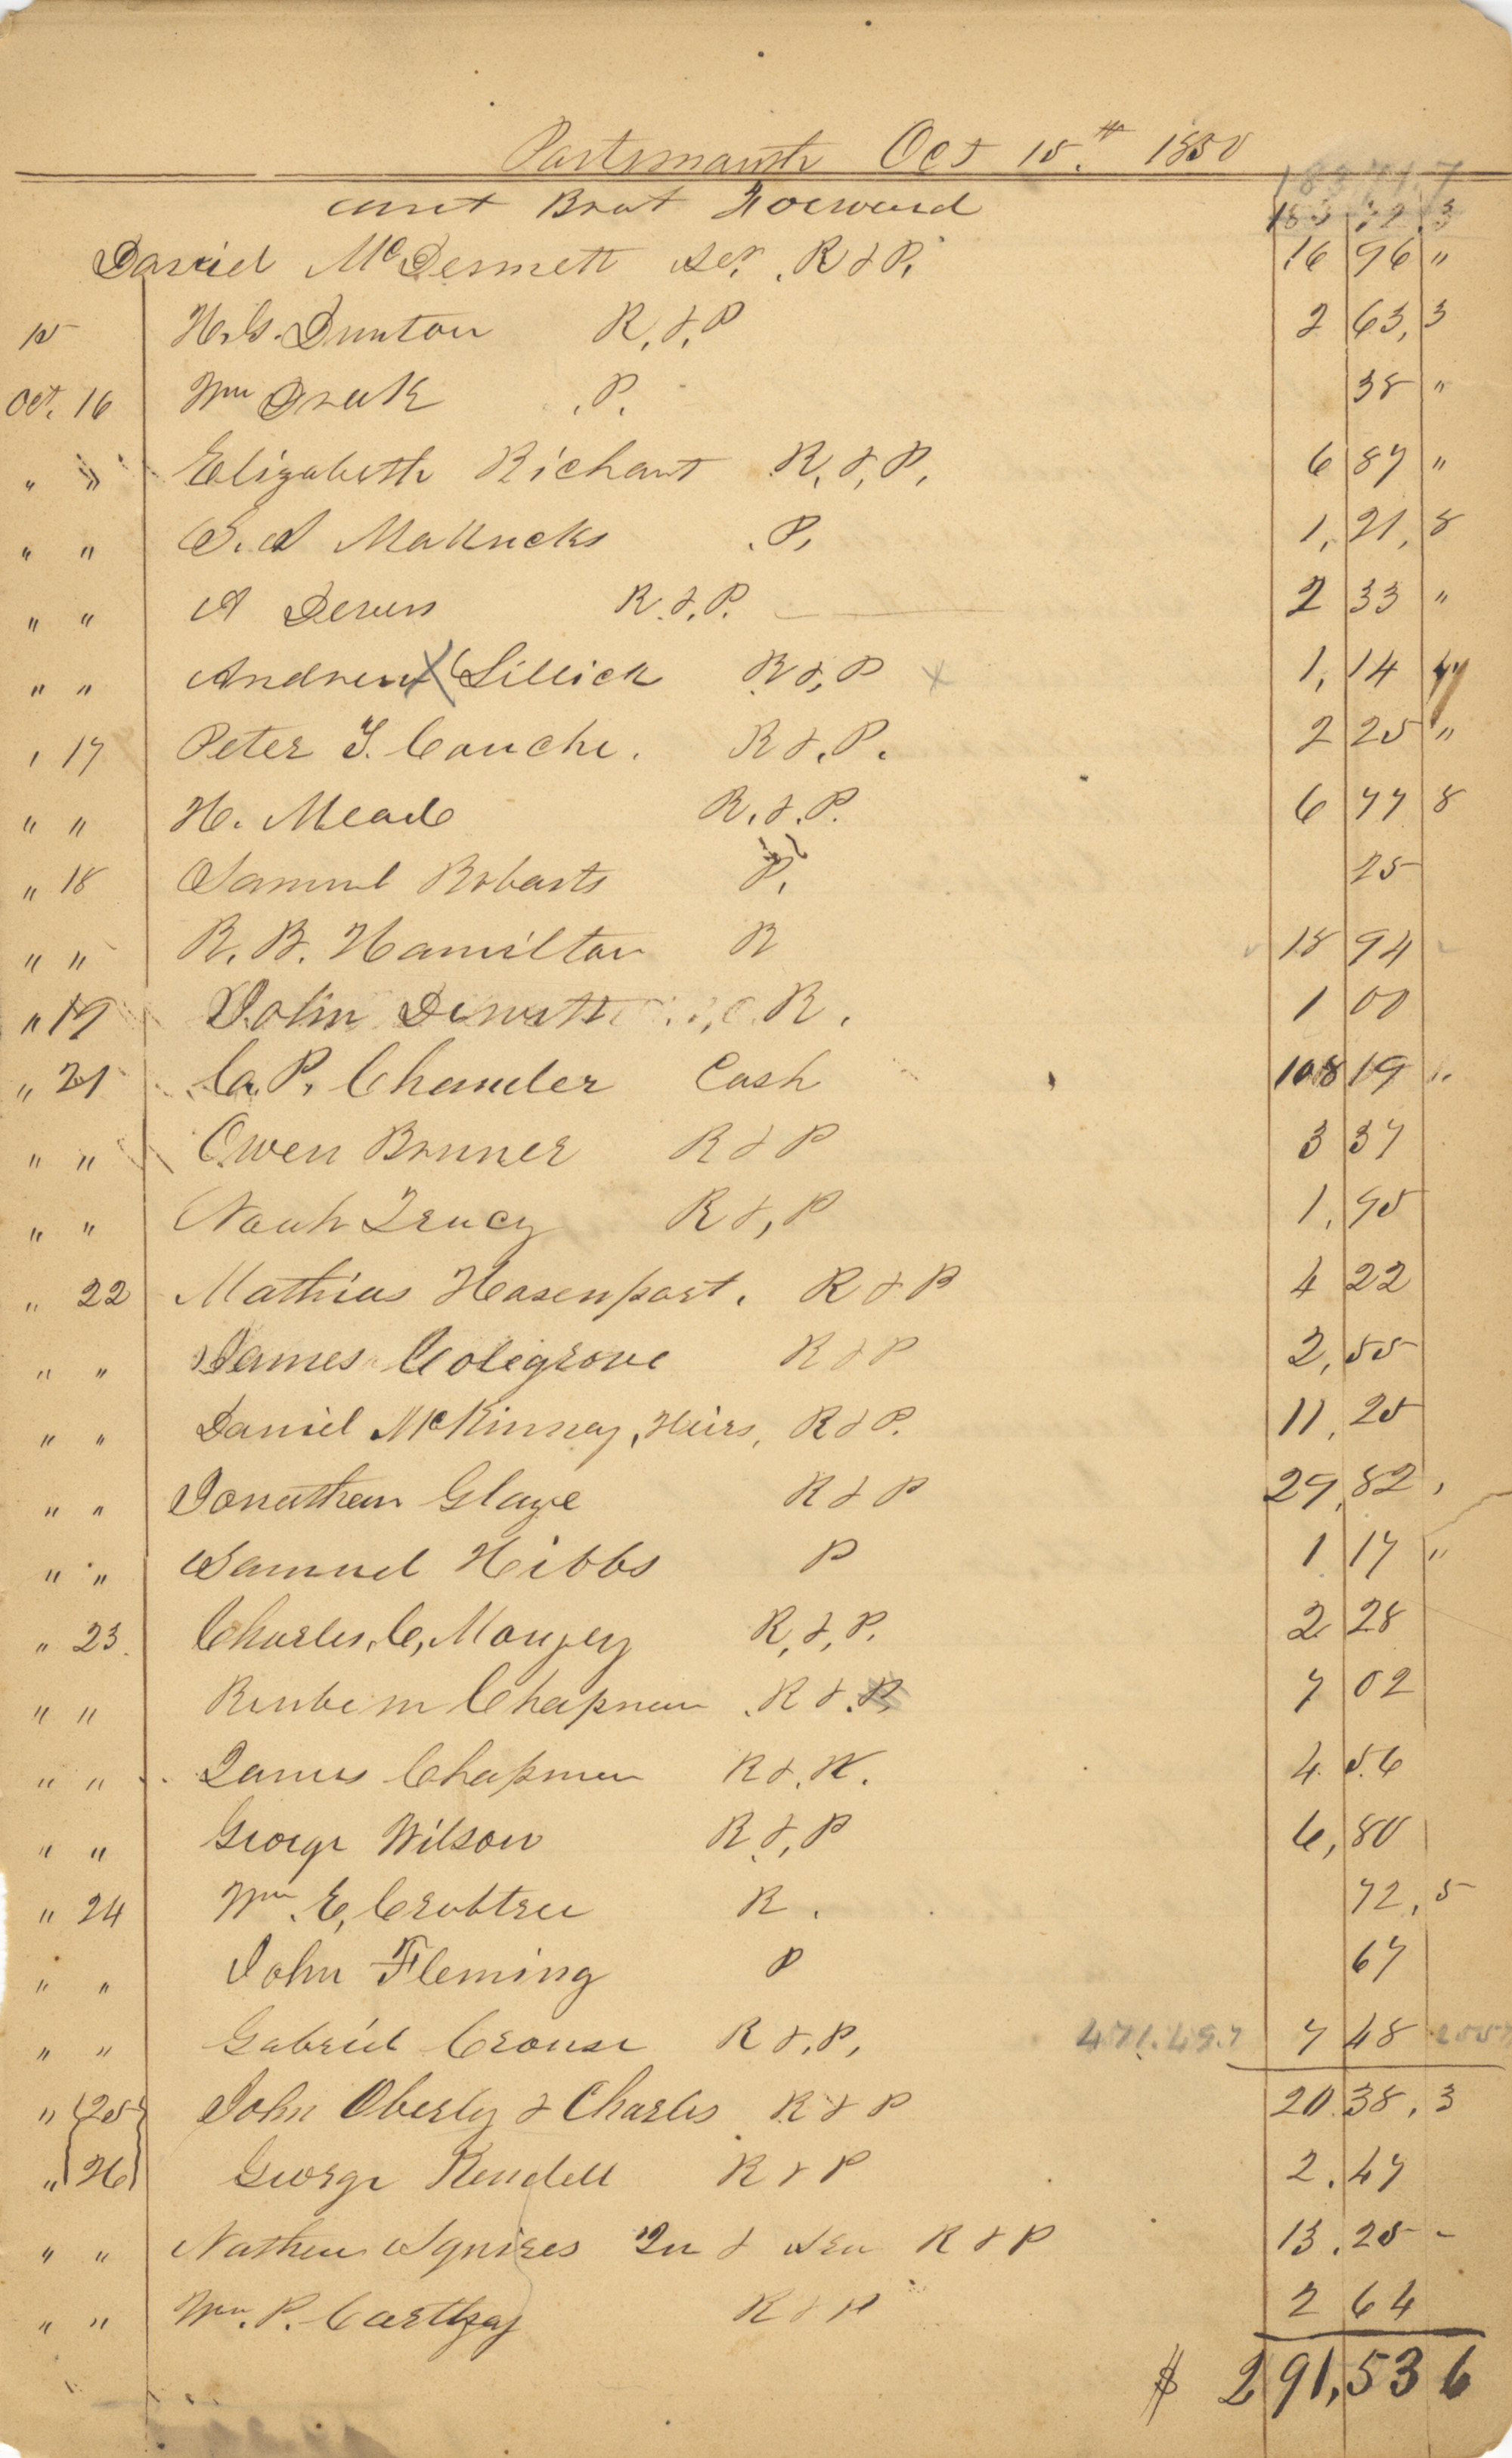 Portsmouth Oct 15.th 1850
amt Brot Forward
David McDermett Ser. R & P. 16 96 "
15 H.G. Dunton R. &. P 2 63, 3
Oct. 16 Wm Drak .P. 38 "
" " Elizabeth Richant R, &, P, 6 87 "
" " S. A Mattucks .P, 1, 21, 8
" " A R. &. P. 2 33 "
" " Andrew Lillick R &, P x 1, 14
" 17 Peter T. Couche. R &. P. 2 25 "
" " H. Mead R. &. P. 6 77 8
" 18 Samuel Robarts P, 25
" " R. B. Hamilton R 18 94
" 19 John R. 1 00
" 21 C. P. Chandler Cash 108 19 "
" " Owen Bruner R & P 3 37
" " Noah Tracy R &, P 1, 95
" 22 Mathias Hasenpart. R & P 4 22
" " James Colegrove R & P 2, 55
" " Daniel McKinney, Heirs, R & P. 11, 25
" " Jonathan Glaze R & P 29, 82 ,
" " Samuel Hibbs P 1 17 "
" 23. Charles, C, Mougey R, &, P. 2 28
" " Reubem Chapman .R & .P, 7 02
" " James Chapman R &. 4. 5.6
" " George Wilson R &, P 6, 80
" 24 Wm. E, Crabtree R . 72, 5
" " John Fleming P 67
" " Gabriel Crouse R &. P, 471.49.7 7 48
" 25 John Oberly & Charles R & P 20. 38, 3
" 26 George Rendell R & P 2. 47
" " Nathan Squires Jn & Sen R & P 13. 25 -
" " Wm. P. R & P 2 64
$ 291,53 6